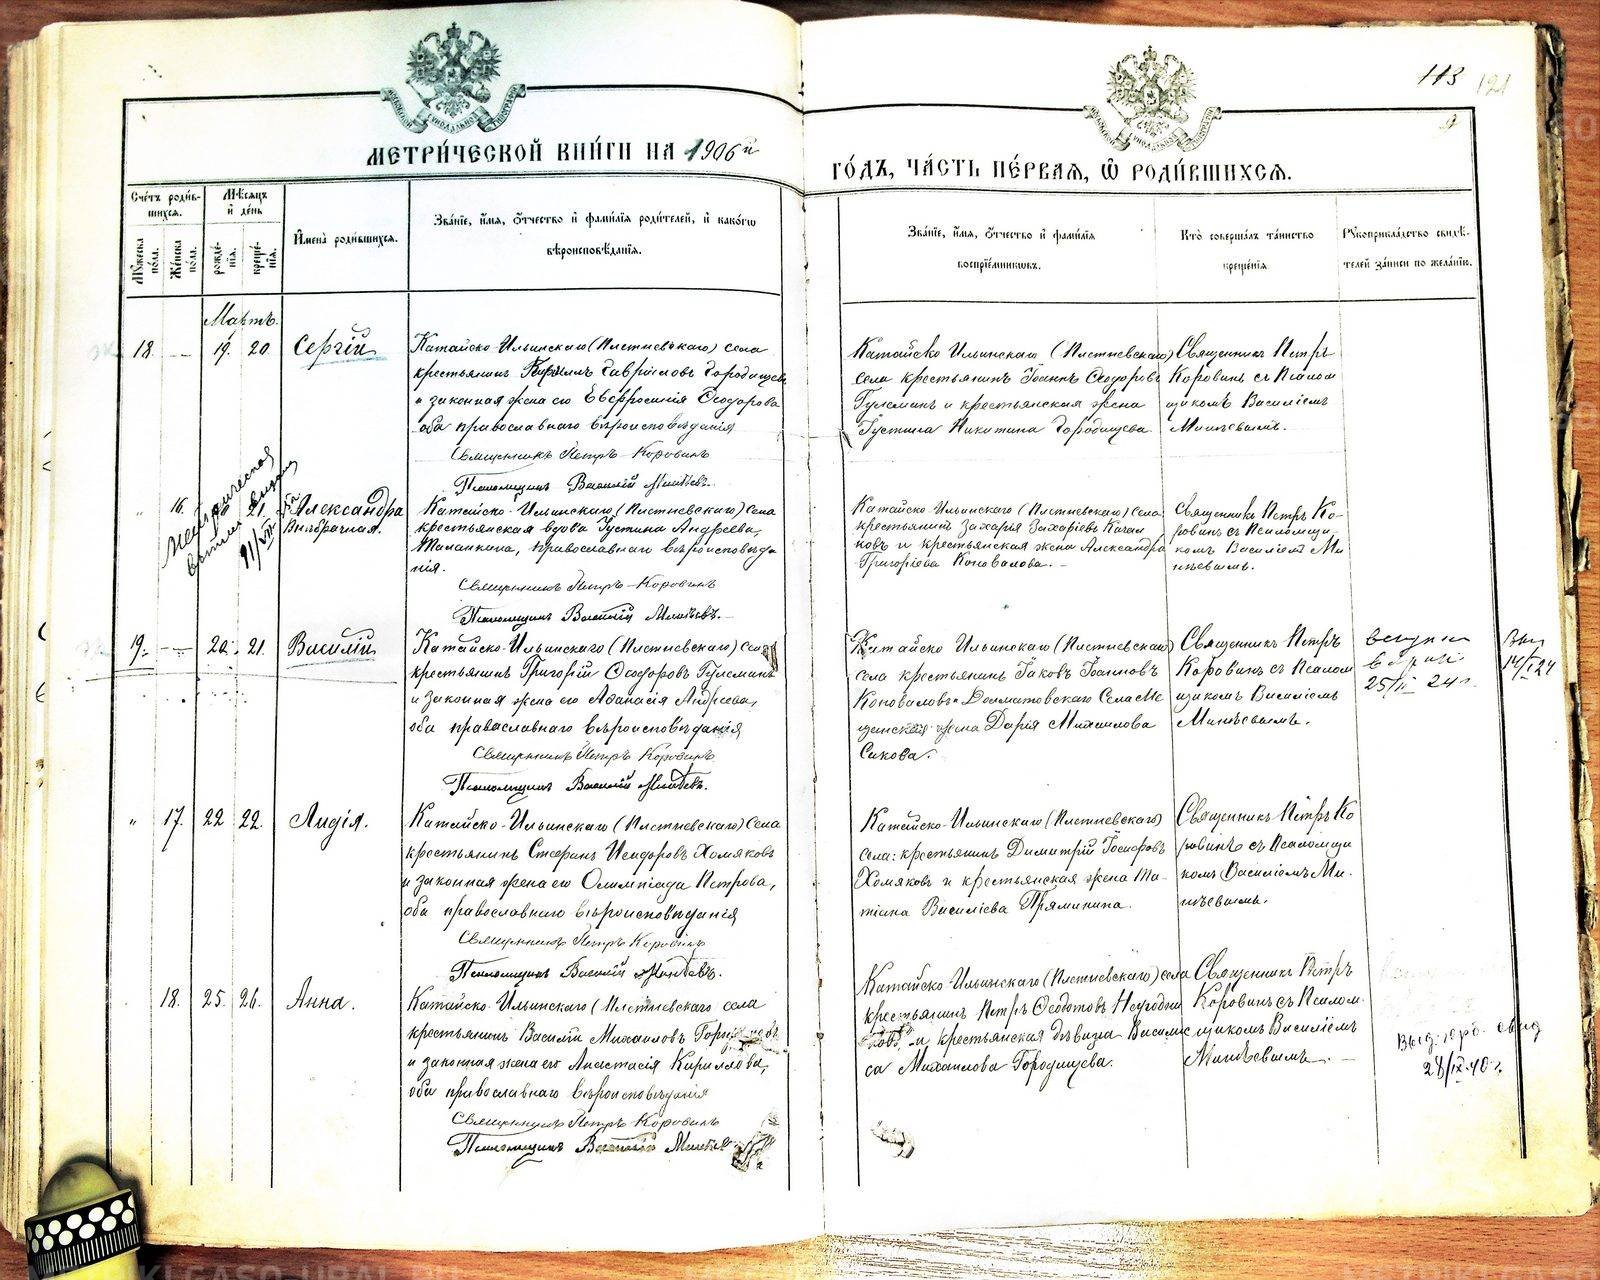 113
121
МЕТРИ́ЧЕСКОЙ КНИ́ГИ НА 1906й
ГО́ДЪ, ЧА́СТЬ ПЕ́РВАЯ, Ѡ РОДИ́ВШИХСЯ.
Сче́тъ роди́в-
шихся.
Му́жеска по́ла.
Же́нска по́ла.
Мѣ́сяцъ
и́ де́нь
рожде́-
нія.
креще́-
нія.
И́мена̀ роди́вшихся.
Зва́ніе, и́мя, о́тчество и́ фами́лія роди́телей, и́ како́гѡ
вѣроисповѣ́данія.
Зва́ніе, и́мя, о́тчество и́ фами́лія
воспріе́мниковъ.
Кто̀ соверша́лъ та́инство
креще́нія.
Рукоприкла́дство свидѣ́-
телей за́писи по жела́нію.
Мартъ.
18. — 19. 20. Сергій
Катайско-Ильинскаго (Плетневскаго) села
крестьянинъ Гавріиловъ Городищевъ
и законная жена его Евфросинія Ѳеодорова
оба православнаго вѣроисповѣданія
Священникъ Петръ Коровинъ
Псаломщикъ Василій Минѣевъ.
Катайско Ильинскаго (Плетневскаго)
села крестьянинъ Іоаннъ Ѳеодоровъ
Гулеманъ и крестьянская жена
Іустина Никитина Городищева.
Священникъ Петръ
Коровинъ съ Псалом
щикомъ Василіемъ
Минѣевымъ.
„ 16. 21. Александра
Внѣбрачная.
Метрическая
выпись выдана
Катайско-Ильинскаго (Плетневскаго) села
крестьянская вдова Іустина Андреева
Маланина, православнаго вѣроисповѣда
нія.
Священникъ Петръ Коровинъ
Псаломщикъ Василій Минѣевъ.
Катайско Ильинскаго (Плетневскаго) села
крестьянинъ Захарія Захаріевъ Качал
ковъ и крестьянская жена Александра
Григоріева Коновалова. —
Священникъ Петръ Ко-
ровинъ съ Псаломщи
комъ Василіемъ Ми
нѣевымъ.
19. — 20. 21. Василій
Катайско-Ильинскаго (Плетневскаго) села
крестьянинъ Григорій Ѳеодоровъ Гулеманъ
и законная жена его Аѳанасія Андреева,
оба православнаго вѣроисповѣданія
Священникъ Петръ Коровинъ
Псаломщикъ Василій Минѣевъ.
Катайско Ильинскаго (Плетневскаго)
села крестьянинъ Іаковъ Іоанновъ
Коноваловъ и Долматовскаго села Мѣ
щанская жена Дарія Михаилова
Сикова.
Священникъ Петръ
Коровинъ съ Псалом
щикомъ Василіемъ
Минѣевымъ.
25/II 24 г.
14/I 24
„ 17. 22 22. Лидія.
Катайско-Ильинскаго (Плетневскаго) села
крестьянинъ Стефанъ Исидоровъ Хомяковъ
и законная жена его Олимпіада Петрова,
оба православнаго вѣроисповѣданія
Священникъ Петръ Коровинъ
Псаломщикъ Василій Минѣевъ.
Катайско-Ильинскаго (Плетневскаго)
села: крестьянинъ Димитрій Іосифовъ
Хомяковъ и крестьянская жена Та-
тіана Василіева Пряминина.
Священникъ Петръ Ко
ровинъ съ Псаломщи
комъ Василіемъ Ми.
нѣевымъ.
18. 25. 26. Анна.
Катайско-Ильинскаго (Плетневскаго села
крестьянинъ Василій Михаиловъ
и законная жена его Анастасія Кириллова,
оба православнаго вѣроисповѣданія
Священникъ Петръ Коровинъ
Псаломщикъ Василій Минѣевъ
Катайско-Ильинскаго (Плетневскаго) села
крестьянинъ Петръ Ѳеодотовъ
и крестьянская дѣвица Васили
са Михаилова Городищева.
Священникъ Петръ
Коровинъ съ Псалом.
щикомъ Василіемъ
Минѣевымъ. —
Выд. герб. свид
28/IX-40 г.